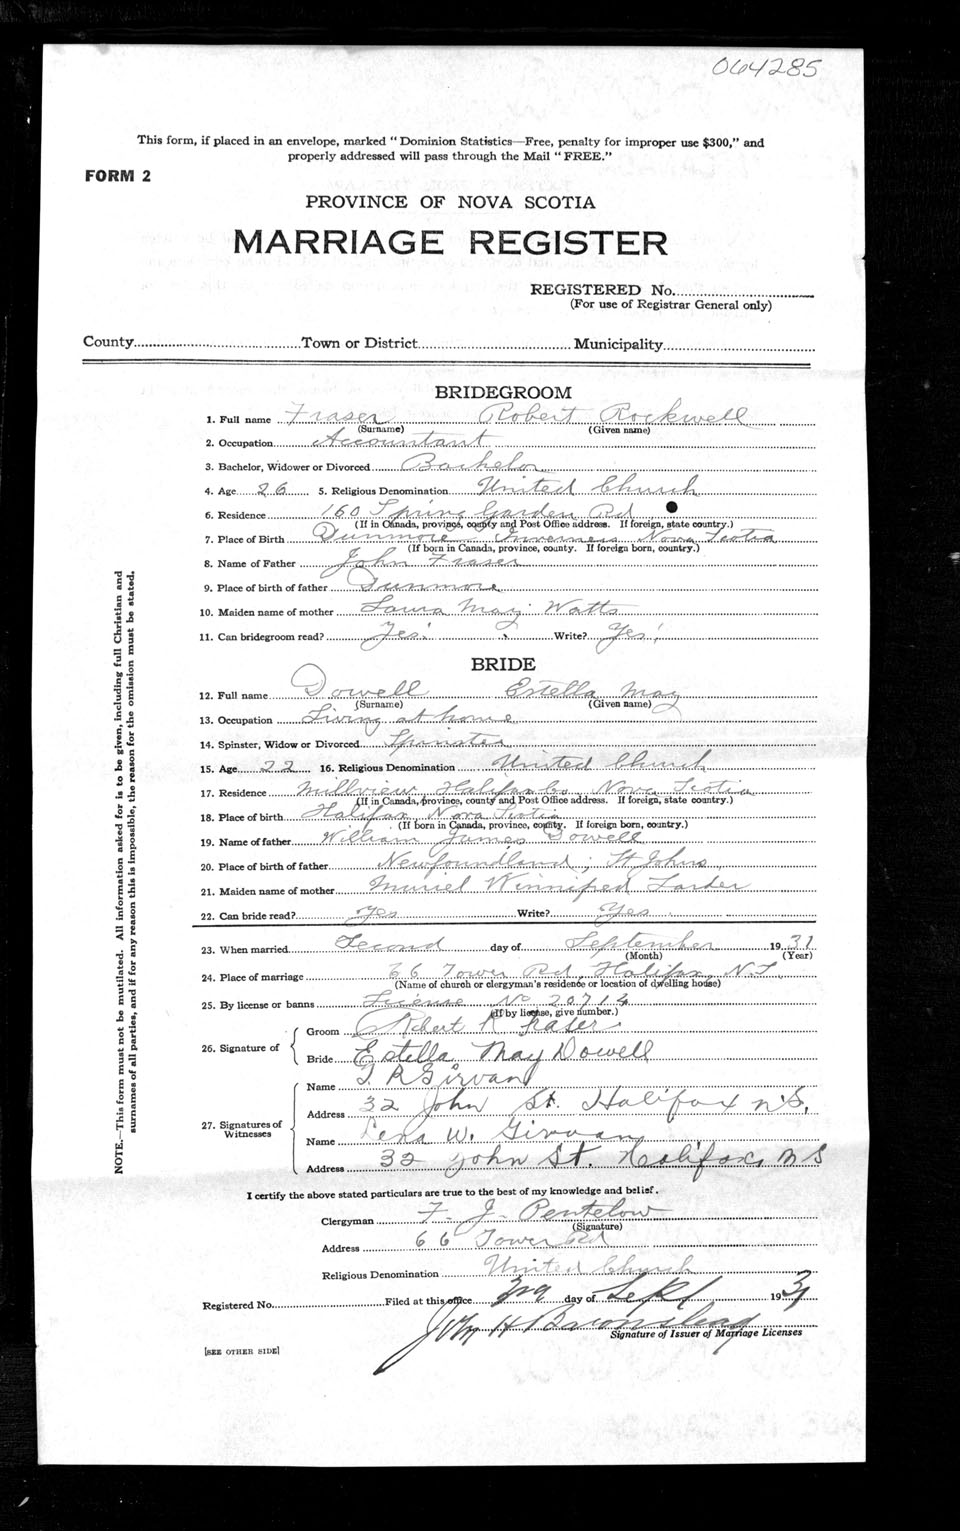 064285
This form, if placed in an envelope, marked "Dominion Statistics—Free, penalty for improper use $300," and
properly addressed will pass through the Mail "FREE."
FORM 2
PROVINCE OF NOVA SCOTIA
MARRIAGE REGISTER
REGISTERED No.
(For use of Registrar General only)
County Town or District Municipality
BRIDEGROOM
1. Full name Fraser Robert Rockwell
(Surname) (Given name)
2. Occupation Accountant
3. Bachelor, Widower or Divorced Bachelor
4. Age 26 5. Religious Denomination United Church
6. Residence 160 Spring Garden Rd
(If in Canada, province, county and Post Office address. If foreign, state country.)
7. Place of Birth Dunmore Inverness Nova Scotia
(If born in Canada, province, county. If foreign born, country.)
8. Name of Father John Fraser
9. Place of birth of father Dunmore
10. Maiden name of mother Laura May Watts
11. Can bridegroom read? Yes Write? Yes
BRIDE
12. Full name Dowell Estella May
(Surname) (Given name)
13. Occupation Living at home
14. Spinster, Widow or Divorced Spinster
15. Age 22 16. Religious Denomination United Church
17. Residence Millview Halifax Co, Nova Scotia
(If in Canada, province, county and Post Office address. If foreign, state country.)
18. Place of birth Halifax Nova Scotia
(If born in Canada, province, county. If foreign born, country.)
19. Name of father William James Dowell
20. Place of birth of father Newfoundland, St Johns
21. Maiden name of mother Muriel Winnifred Larder
22. Can bride read? Yes Write? Yes
23. When married Second day of September 1931
(Month) (Year)
24. Place of marriage 66 Tower Rd, Halifax, N.S.
(Name of church or clergyman's residence or location of dwelling house)
25. By license or banns License No 20714
(If by license, give number.)
26. Signature of
Groom Robert R Fraser
Bride Estella May Dowell
27. Signatures of Witnesses
Name T. R Girvan
Address 32 John St. Halifax N.S.
Name Lena W. Girvan
Address 32 John St. Halifax, N S
I certify the above stated particulars are true to the best of my knowledge and belief.
Clergyman F. J. Pentelow
(Signature)
Address 66 Tower Rd
Religious Denomination United Church
Registered No. Filed at this office 3rd day of Sept 1931
Signature of Issuer of Marriage Licenses
[SEE OTHER SIDE]
NOTE.—This form must not be mutilated. All information asked for is to be given, including full Christian and
surnames of all parties, and if for any reason this is impossible, the reason for the omission must be stated.